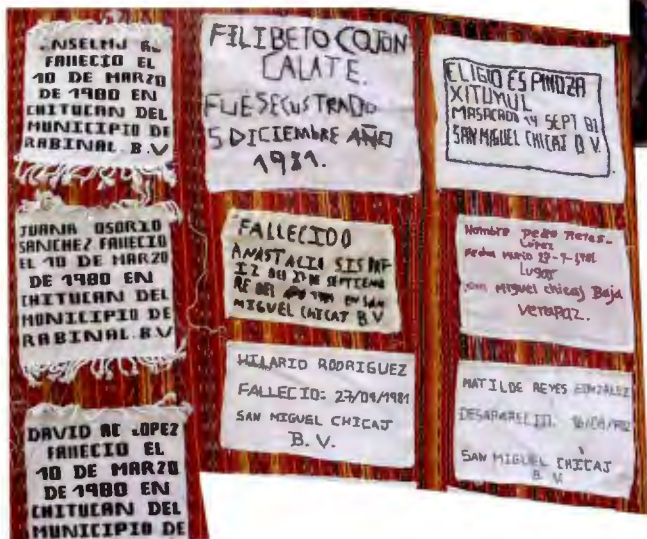 FALLECIO EL
10 DE MARZO
DE 1980 EN
CHITUCAN DEL
MUNICIPIO DE
RABINAL. B.V
JUANA OSORIO
SANCHEZ FALLECIO
EL 10 DE MARZO
DE 1980 EN
CHITUCAN DEL
MUNICIPIO DE
RABINAL. B.V
DAVID AC LOPEZ
FALLECIO EL
10 DE MARZO
DE 1980 EN
CHITUCAN DEL
MUNICIPIO DE
FILIBETO COJON
CALATE.
FUE SECUSTRADO
5 DICIEMBRE AÑO
1981.
FALLECIDO
ANASTACIA SIS
DEL 27 DE SEPTIEMB
RE DEL AÑO 1981 EN SAN
MIGUEL CHICAJ B.V
HILARIO RODRIGUEZ
FALLECIO: 27/09/1981
SAN MIGUEL CHICAJ
B.V.
ELIGIO ESPINOZA
XITUMUL
MASACADO 14 SEPT 81
SAN MIGUEL CHICAJ B.V.
Nombre pedro
López
fecha murio
Lugar
san Miguel chicaj Baja
Verapaz.
MATILDE REYES GONZALEZ
DESAPARECIO:
SAN MIGUEL CHICAJ
B.V